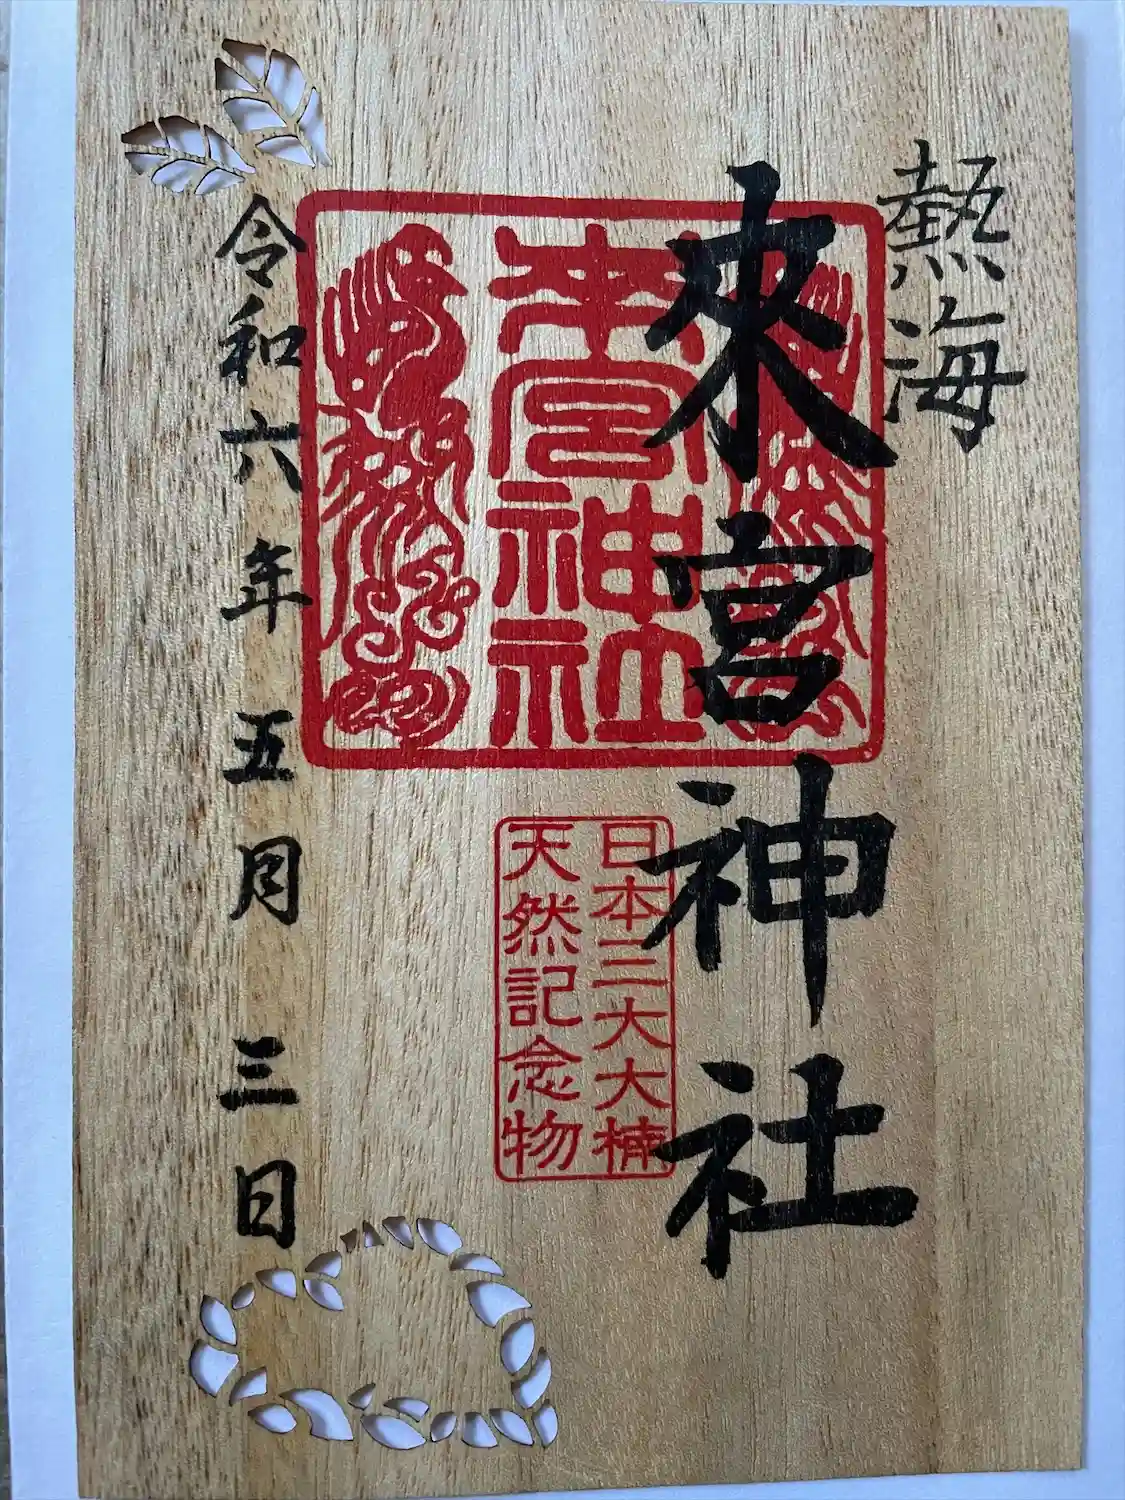 熱海
來宮神社
來宮神社
日本三大大楠
天然記念物
令和六年五月三日